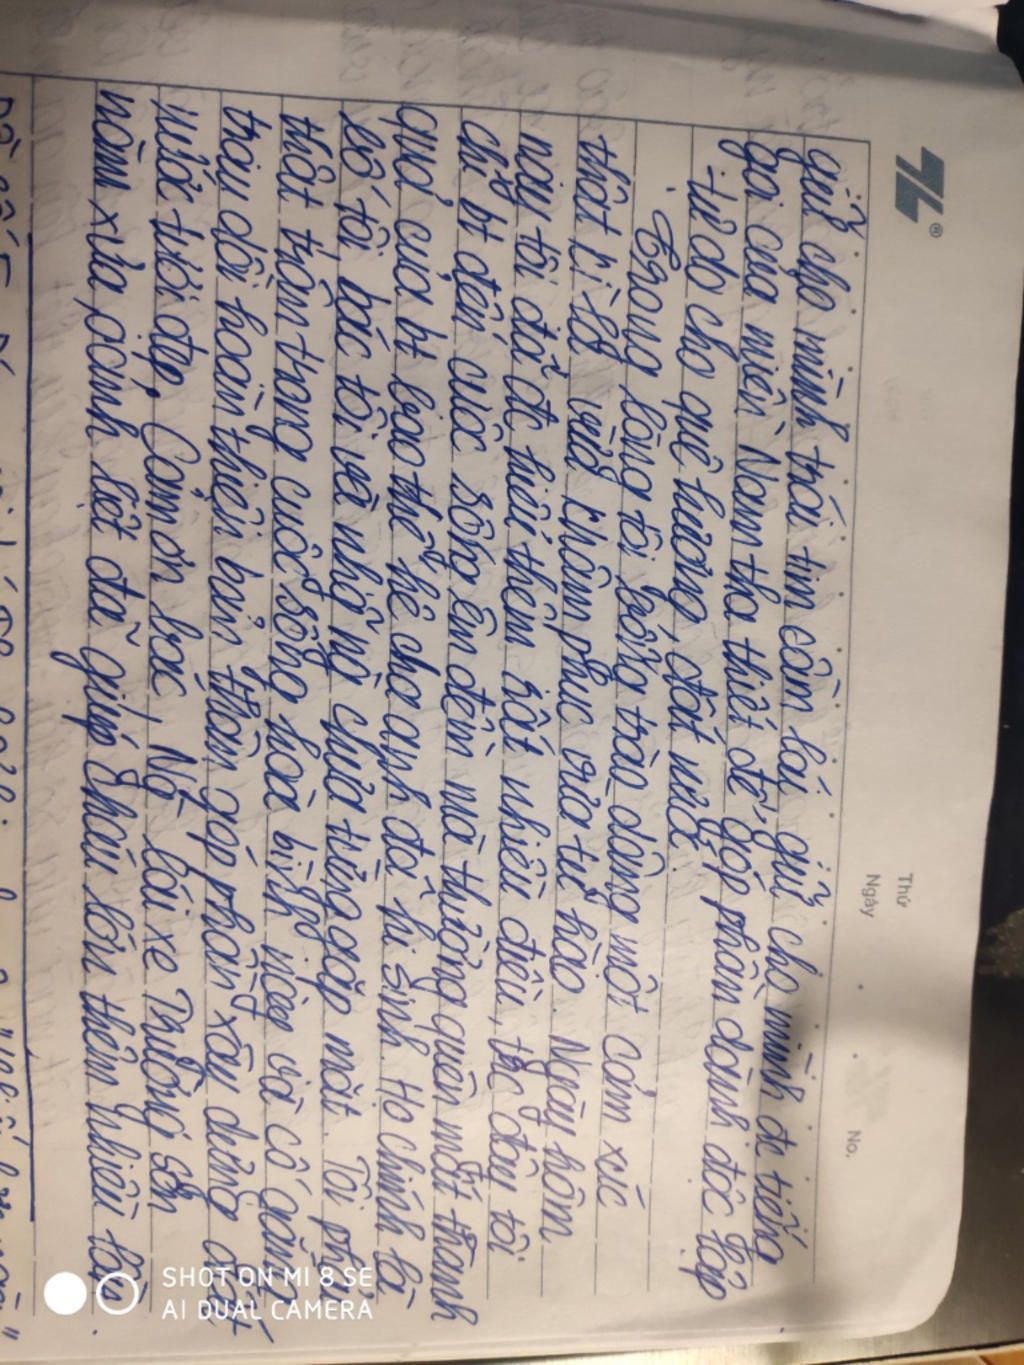 Thứ
Ngày
No.
giữ cho mình trái tim cầm lái, giữ cho mình đc tiếng
gọi của miền Nam tha thiết để góp phần dành độc lập
tự do cho quê hương, đất nước.
Trong lòng tôi bỗng trào dâng một cảm xúc
thật kì lạ, vừa khâm phục vừa tự hào. Ngày hôm
nay tôi đã đc hiểu thêm rất nhiều điều, trc đây tôi
chỉ bt đến cuộc sống êm đềm mà thường quên mất thành
quả của bt bao thế hệ cha anh đã hi sinh. Họ chính là
bố tôi bác tôi và nhg ng chưa từng gặp mặt. Tôi phải
thật trân trọng cuộc sống hoà bình và cố gắng
trau dồi hoàn thiện bản thân, góp phần xây dựng đất
nước tươi đẹp. Cảm ơn bác, Ng lái xe Trường Sơn
năm xưa, oanh liệt đã giúp cháu lớn thêm nhiều lần.
SHOT ON MI 8 SE
AI DUAL CAMERA